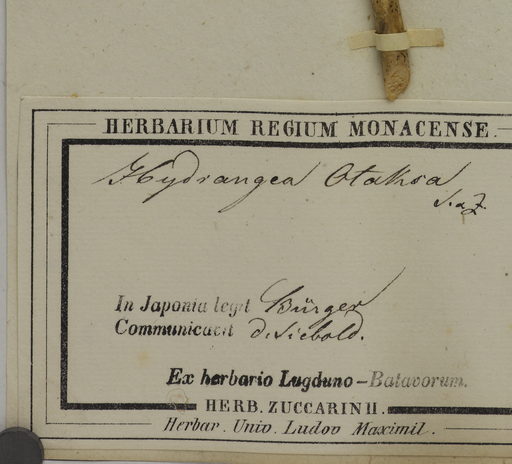 HERBARIUM REGIUM MONACENSE.
Hydrangea Otaksa
S. a Z.
In Japonia legit Bürger
Communicavit d. Siebold.
Ex herbario Lugduno-Batavorum.
HERB. ZUCCARINII.
Herbar. Univ. Ludov Maximil.